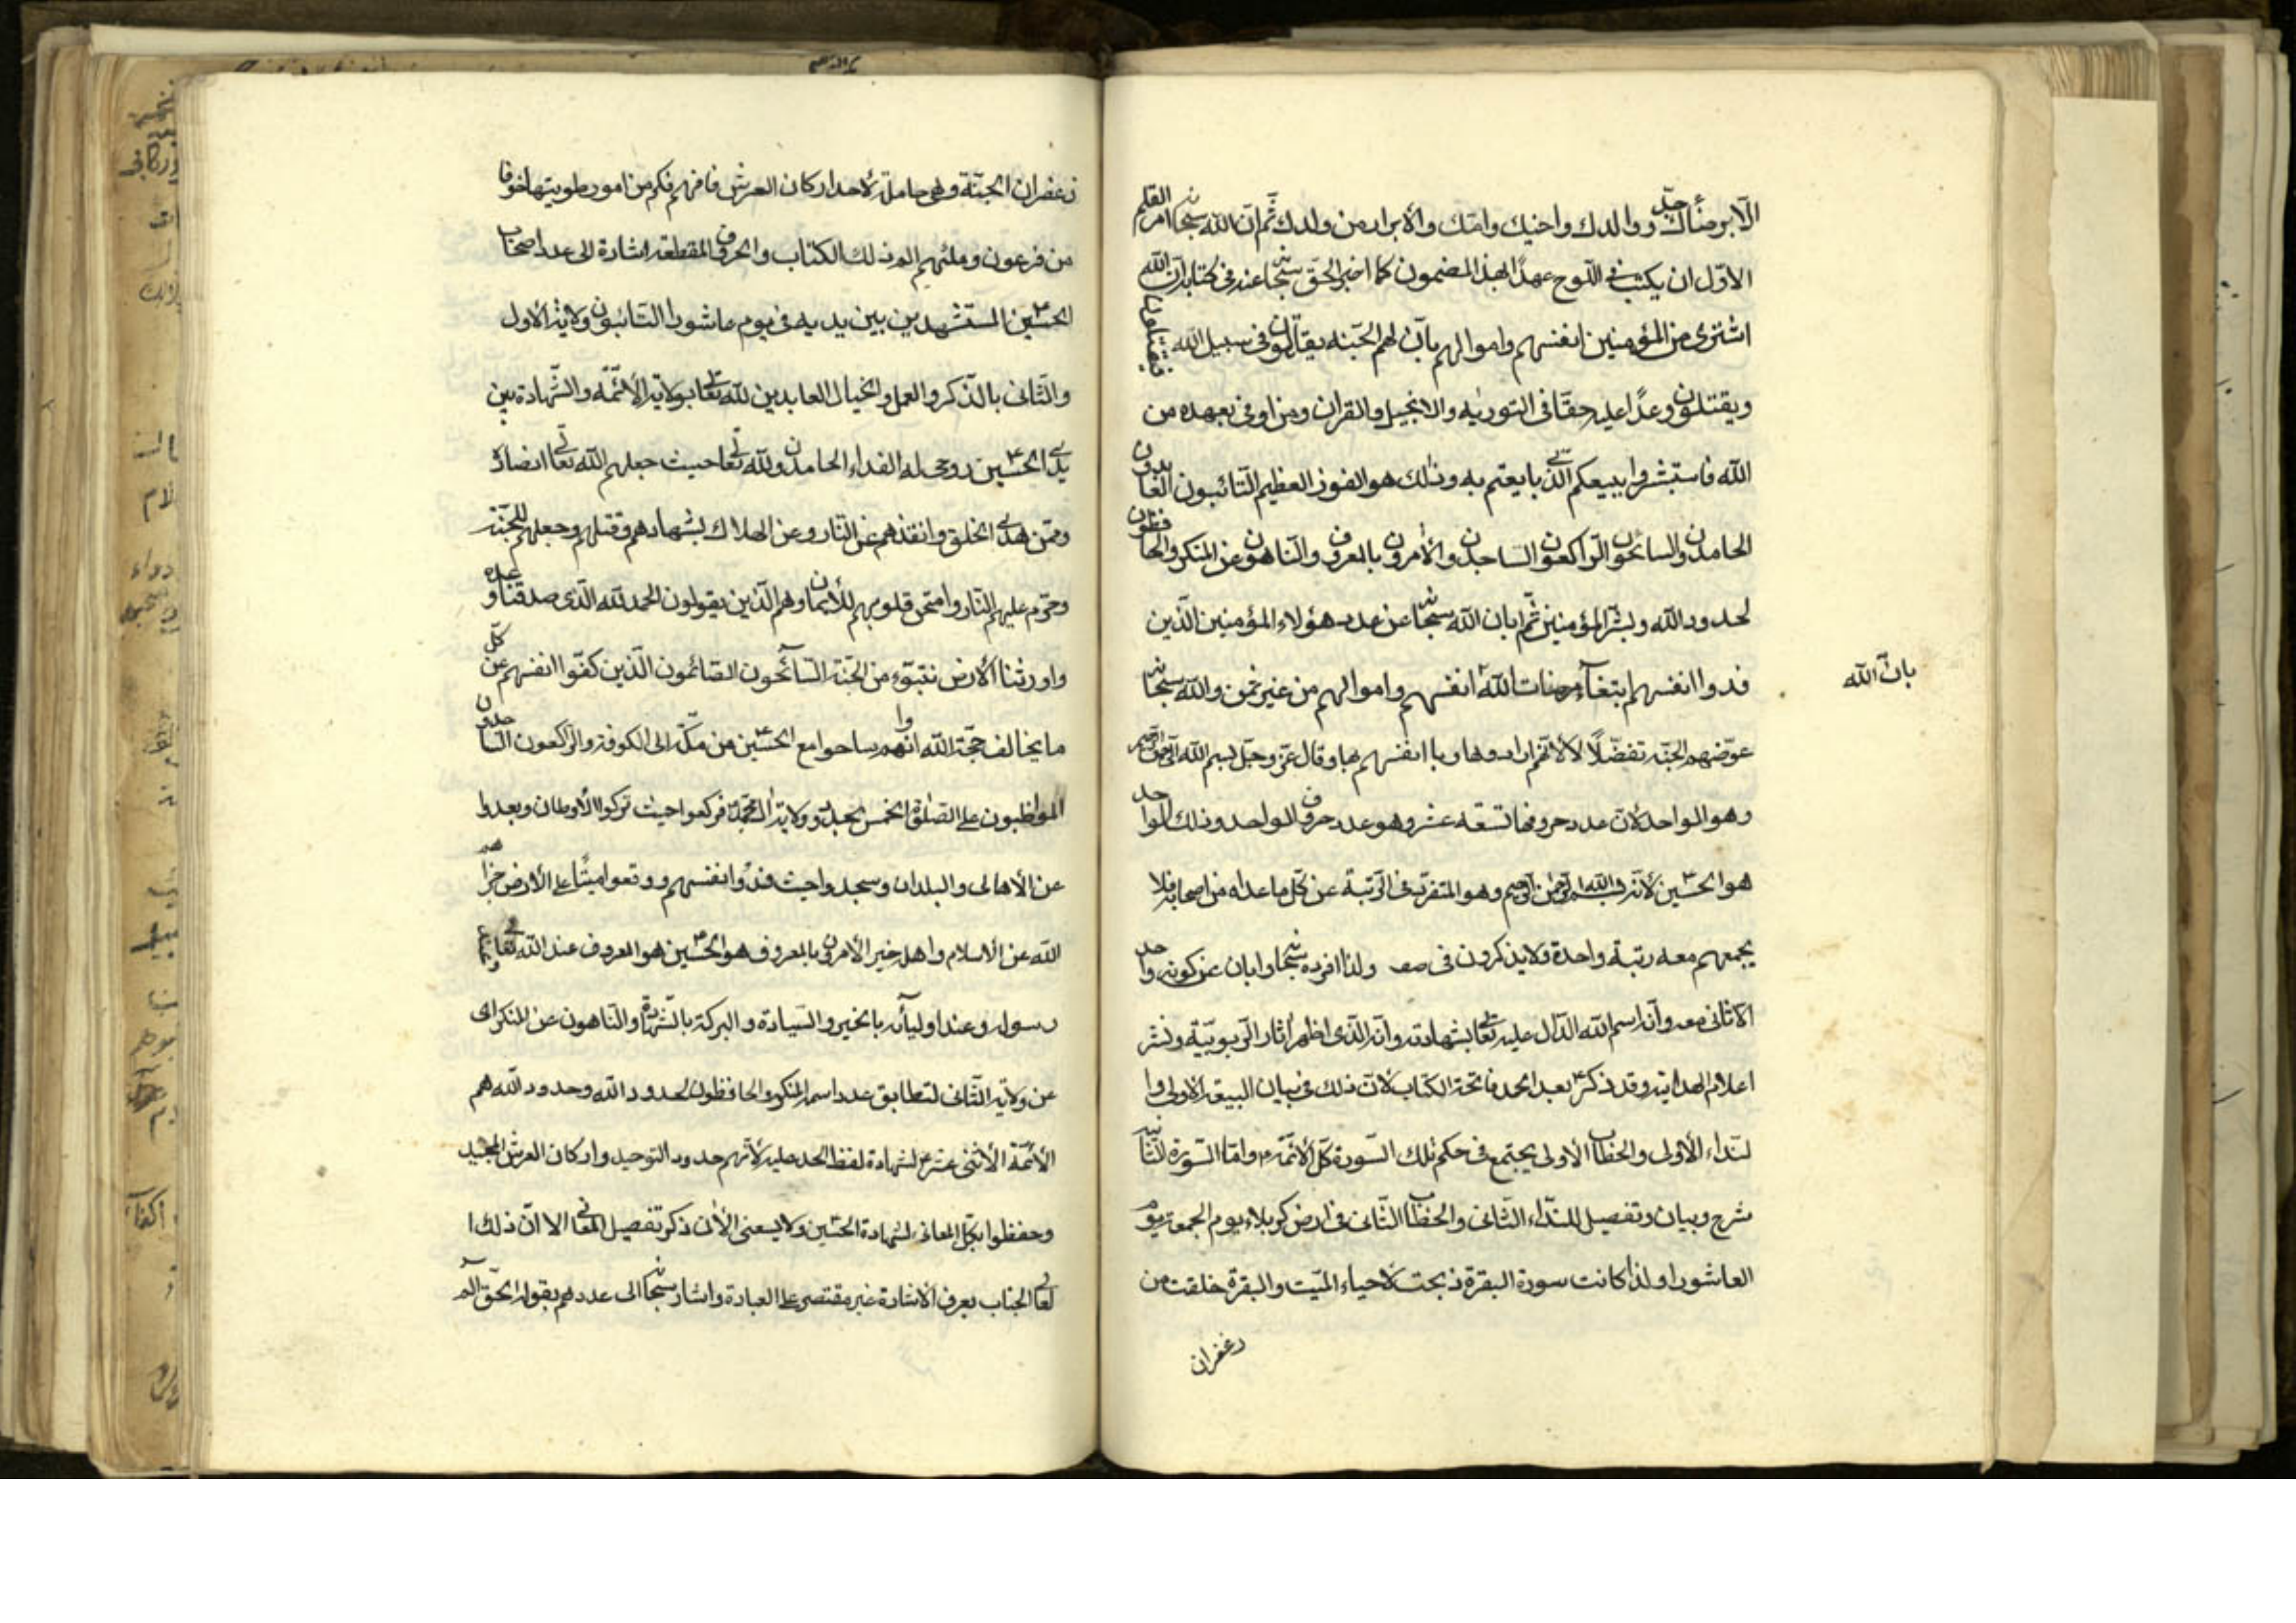 الّا برضاك جدّك ووالدك واخيك وامّك والأبرار من ولدك ثمّ انّ الله سبحانه امر القلم
الاوّل ان يكتب فى اللّوح عهدًا بهذا المضمون كما اخبر الحقّ سبحانه عنه فى كتابه انّ الله
اشترى من المؤمنين انفسهم واموالهم بانّ لهم الجنّة يقاتلون فى سبيل الله فيقتلون
ويقتلون وعدًا عليه حقّا فى التورية والانجيل والقران ومن اوفى بعهده من
الله فاستبشروا ببيعكم الّذى بايعتم به وذلك هو الفوز العظيم التّائبون العابدون
الحامدون السائحون الرّاكعون الساجدون الأمرون بالمعروف والنّاهون عن المنكر والحافظون
لحدود الله وبشّر المؤمنين ثمّ ابان الله سبحانه عن عدد هؤلاء المؤمنين الّذين
فدوا انفسهم ابتغآء مرضات الله انفسهم واموالهم من غير ثمن والله سبحانه
بانّ الله
عوّضهم الجنّة تفضّلًا لا لانّهم ارادوها وباعوا انفسهم بها وقال عزّ وجلّ بسم الله الرّحمن الرّحيم
وهو الواحد لأن عدد حروفها تسعة عشر وهو عدد حروف الواحد وذلك الواحد
هو الحسين لأنّه بسم الله الرّحمن الرّحيم وهو المتفرّد فى الرّتبة عن كلّ ما عداه من اصحابه فلا
يجمعهم معه رتبة واحدة ولا يذكرون فى صف ولذا افرده سبحانه وابان عن كونه واحد
لا ثانى معه وانّه اسم الله الدّال عليه تعالى بشهادته وانّه الّذى اظهر اثار الرّبوبيّة ونشر
اعلام الهداية وقد ذكر بعد الحمد فاتحة الكتاب لأنّ ذلك فى بيان البيعة الاولى وا
لنّداء الأولى والخطاب الأولى يجتمع فى حكم تلك السّورة كلّ الأئمّة وامّا السّورة الثّانية
شرح وبيان وتفصيل للنّداء الثّانى والخطاب الثّانى فى ارض كربلاء يوم الجمعة يوم
العاشورا ولذا كانت سورة البقرة ذبحت لأحياء الميّت والبقرة خلقت من
زعفران
زعفران الجنّة وهى حاملة لأحد اركان العرش فافهم فكم من امور طويتها خوفا
من فرعون وملئهم الم ذلك الكتاب والحروف المقطعة اشارة الى عدد اصحاب
الحسين المستشهدين بين يديه فى يوم عاشورا التّائبون ولاية الأول
والثّانى بالذّكر والعمل والخيال العابدين لله تعالى بولاية الأئمّة والشّهادة بين
يدى الحسين روحى له الفداء الحامدون لله تعالى حيث جعلهم الله تعالى انصاره
وممّن هدى الخلق وانقذهم عن النّار وعن الهلاك بشهادهم وقتلهم وجعلهم للجنّة
وحرّم عليهم النّار وامتحن قلوبهم للأيمان وهم الّذين يقولون الحمد لله الّذى صدقنا وعده
واورثنا الأرض نتبوّء من الجنّة السّآئحون الصّائمون الّذين كفّوا انفسهم عن كلّ
ما يخالف حجّة الله وانّهم ساحوا مع الحسين من مكّة الى الكوفة والرّاكعون السّاجدون
المواظبون على الصّلوة الخمس بحبل وولاية ال محمّد فركعوا حيث تركوا الأوطان وبعدوا
عن الأهالى والبلدان وسجدوا حيث فدوا انفسهم ووقعوا ميتًا على الأرض جزاهم
الله عن الأسلام واهله خير الأمرون بالمعروف هو الحسين هو المعروف عند الله تعالى وعند
رسوله وعند اوليآئه بالخير والسّيادة والبركة بالشّهادة والنّاهون عن المنكر اى
عن ولاية الثّانى لتطابق عدد اسم المنكر والحافظون لحدود الله وحدود الله هم
الأئمّة الأثنى عشر لشهادة لفظ الحد عليه لأنّهم حدود التّوحيد واركان العرش المجيد
وحفظوا بكلّ المعانى لشهادة الحسين ولا يسعنى الأن ذكر تفصيل المعانى الا انّ ذلك ا
لعالى الجناب يعرف الأشارة غير مقتصر على العبادة واشار سبحانه الى عددهم بقوله الحقّ الم